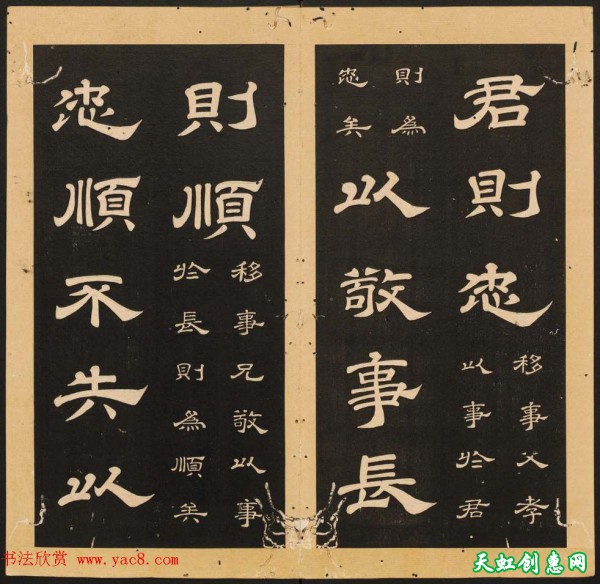 君則忠
移事父孝
以事於君
則為
忠矣
以敬事長
則順
移事兄敬以事
於長則為順矣
忠順不失以
书法欣赏 www.yac8.com
天虹创惠网